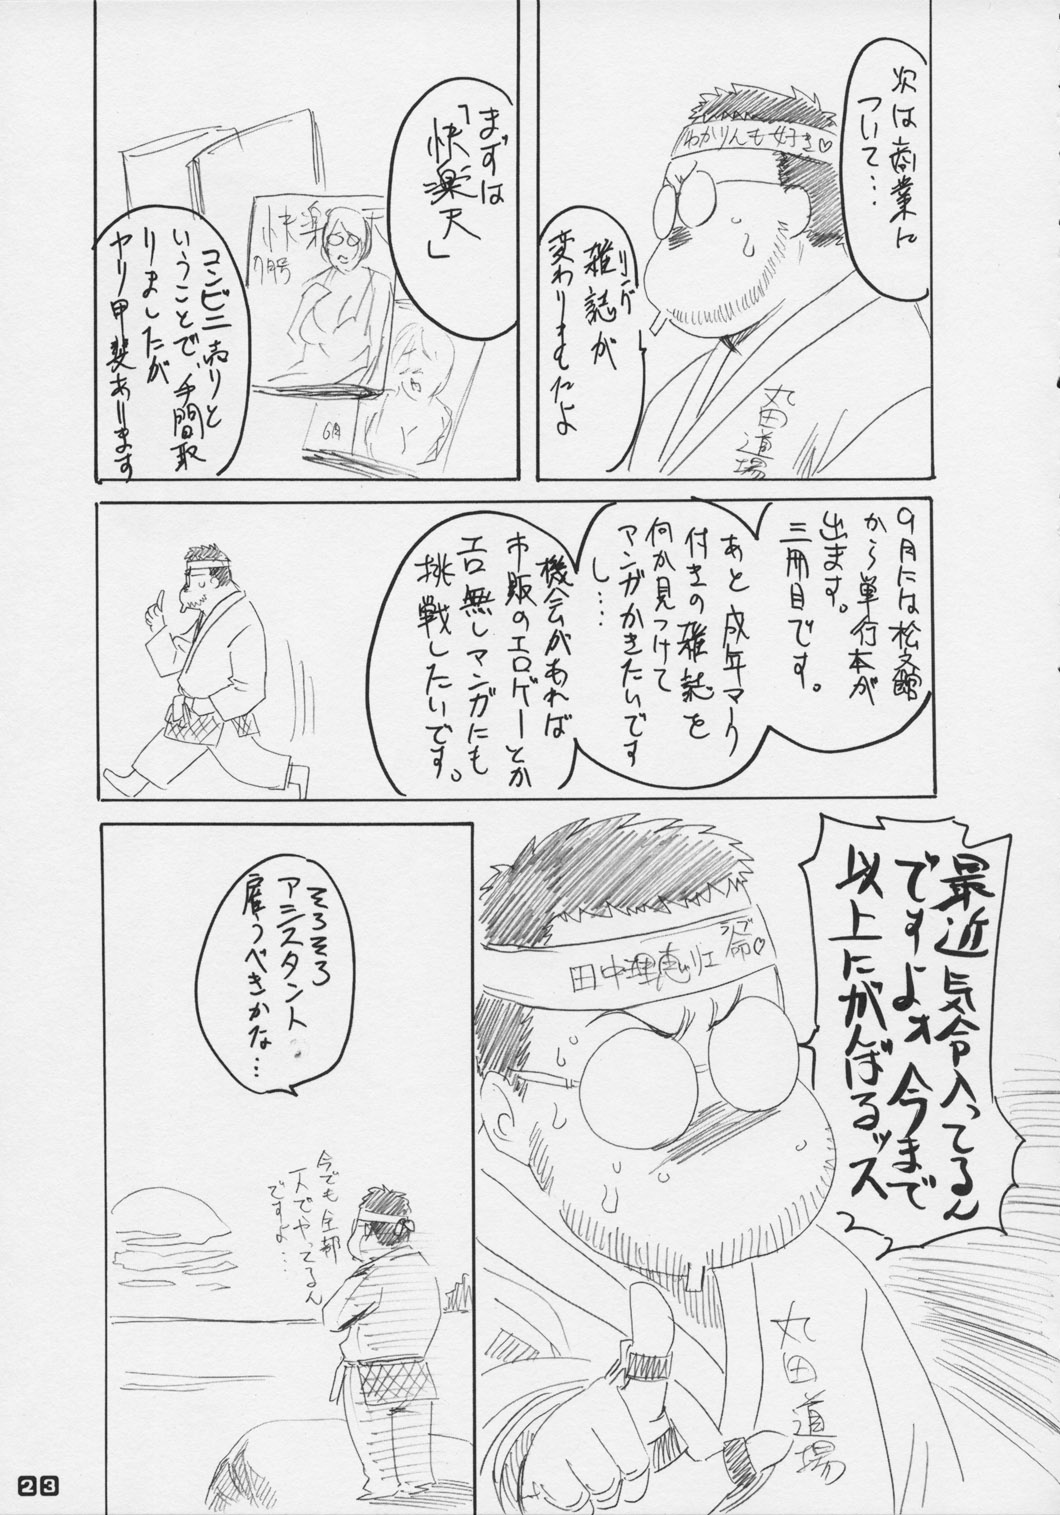 次は商業に
ついて…
わかりんも好き♡
リング
雑誌が
変わりましたよ
丸田道場
まずは
「快楽天」
快楽天
7月号
6月
コンビニ売りと
いうことで、手間取
りましたが
ヤリ甲斐あります
9月には松文館
から単行本が
出ます。
三冊目です。
あと成年マーク
付きの雑誌を
何か見つけて
マンガかきたいです
し…
機会があれば
市販のエロゲーとか
エロ無しマンガにも
挑戦したいです。
最近気合入ってるん
ですよォ今まで
以上にがんばるッス
田中理恵
命♡
丸田道場
そろそろ
アシスタント
雇うべきかな…
今でも全部
一人でやってるん
ですよ…
23